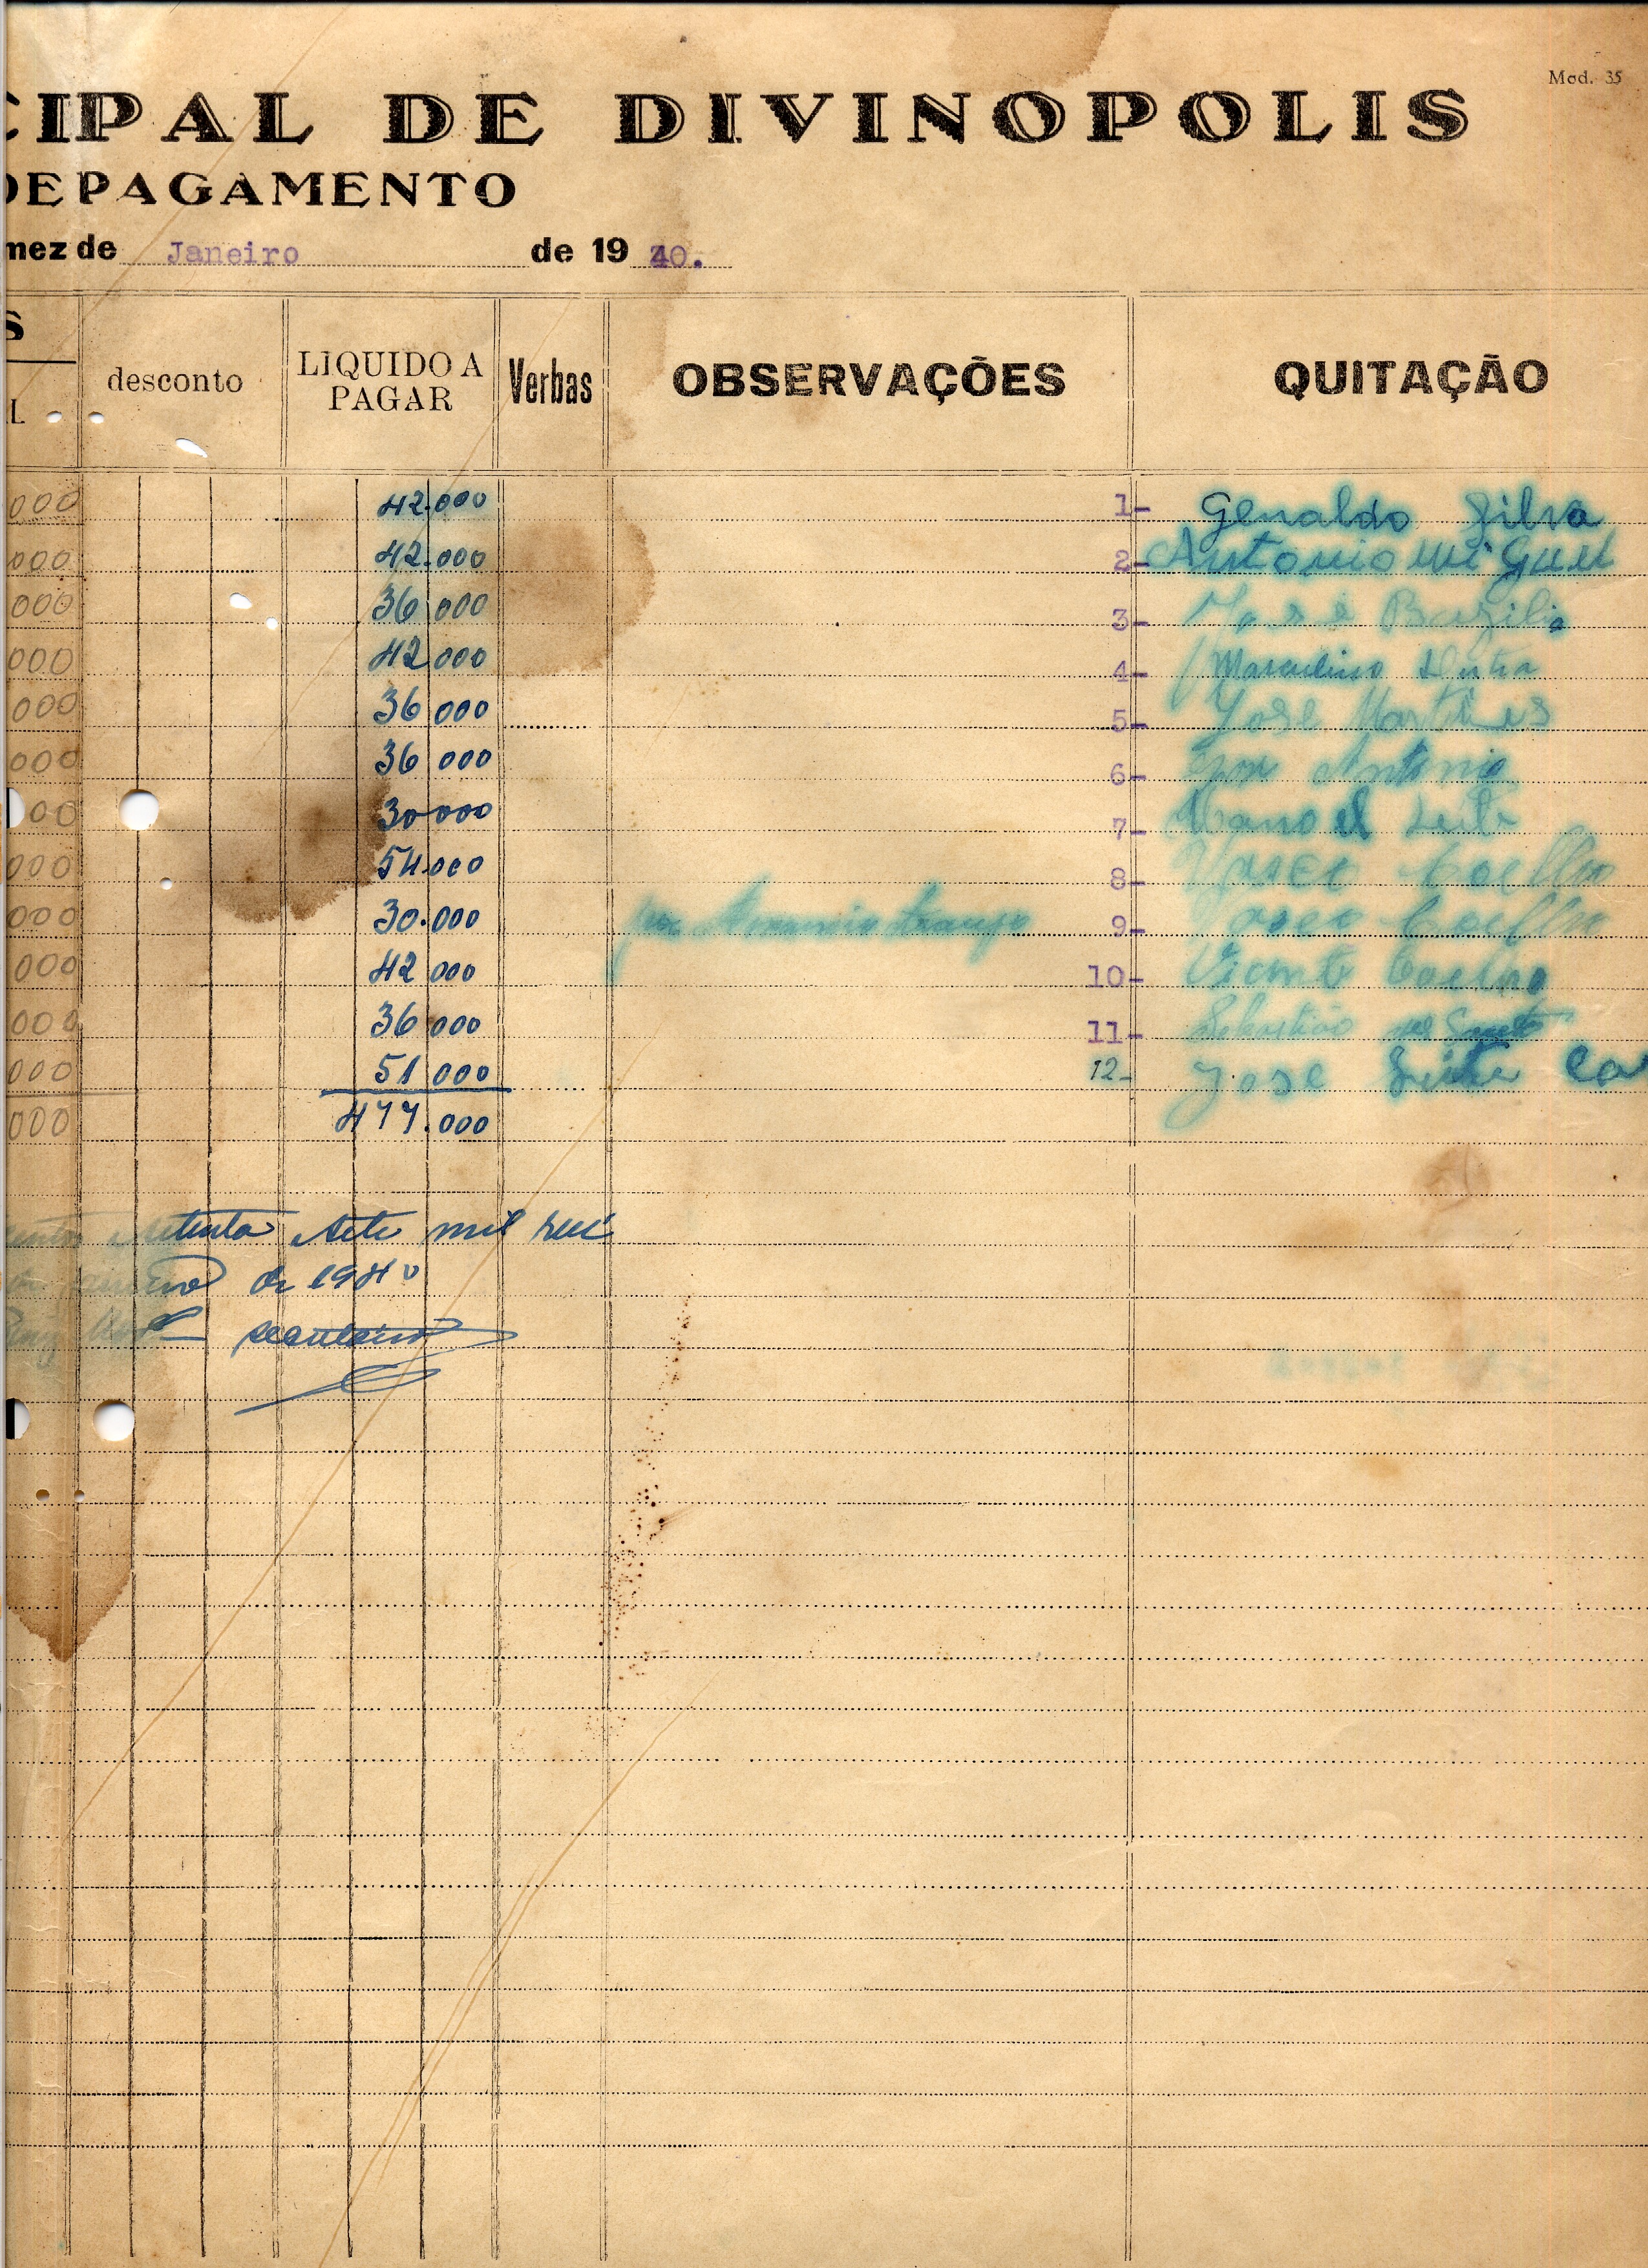 Mod. 35
CIPAL DE DIVINOPOLIS
DE PAGAMENTO
mez de Janeiro de 1940.
S
L desconto LIQUIDO A PAGAR Verbas OBSERVAÇÕES QUITAÇÃO
000 42.000 1- Geraldo Silva
000 42.000 2- Antonio miguel
000 36 000 3- José Bazilio
000 42 000 4- Marculino Dutra
000 36 000 5- José Martines
000 36 000 6- Antonio
000 30 000 7- Manoel Leite
000 54.000 8- Coelho
000 30.000 por Araujo 9- Coelho
000 42 000 10- Vicente Coelho
000 36 000 11- Sebastião dos Santos
000 51 000 12- José Leite
000 477.000
centos setenta sete mil reis
janeiro de 1940